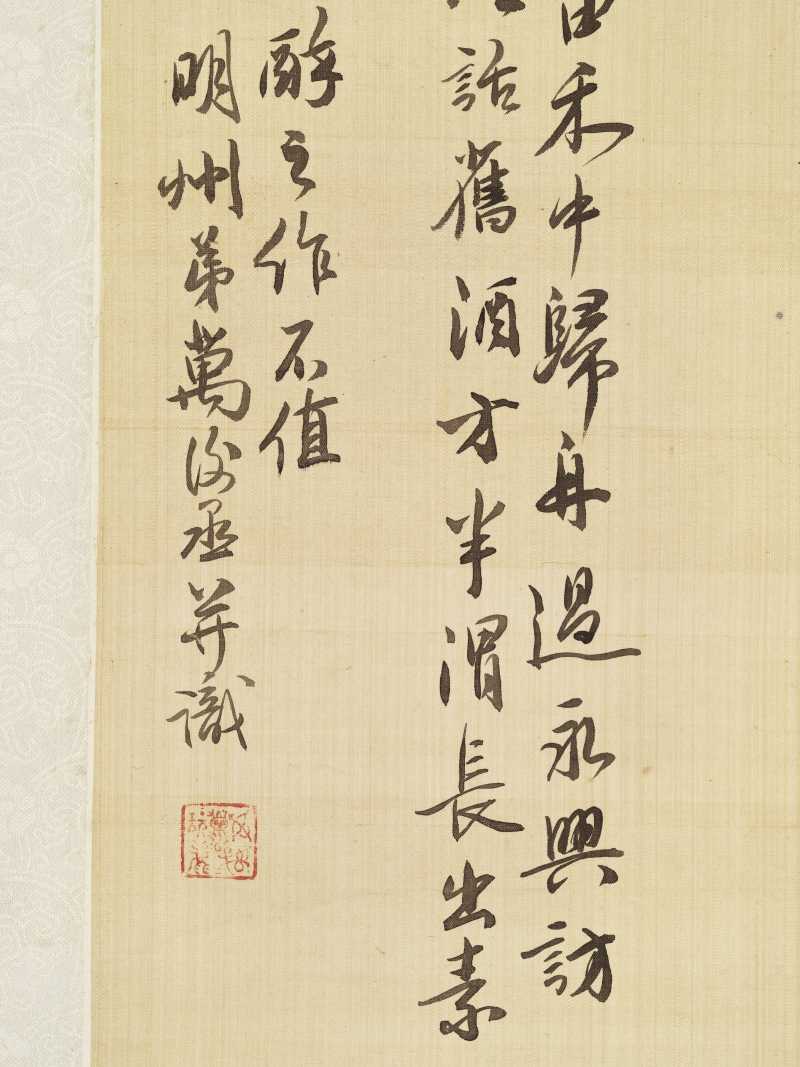 禾中歸舟過永興訪
話舊酒方半渭長出素
醉之作不值
明州弟萬後丞并識